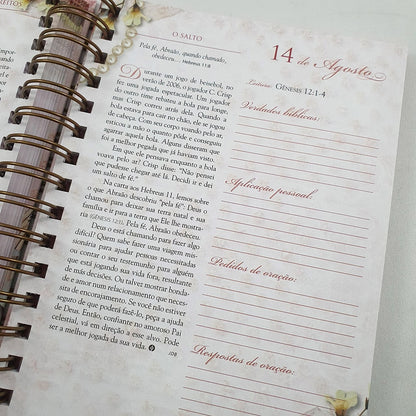 REITOS
O SALTO
Pela fé, Abraão, quando chamado,
obedeceu... HEBREUS 11:8
Durante um jogo de beisebol, no
verão de 2006, o jogador C. Crisp
fez uma jogada espetacular. Um jogador
do outro time rebateu a bola para longe,
mas Crisp correu atrás dela. Quando a
bola estava para cair no chão, ele se jogou
de cabeça. Com seu corpo voando pelo ar,
esticou a mão o quanto pôde e conseguiu
agarrar aquela bola. Alguns disseram que
foi a melhor pegada que já haviam visto.
Em que ele pensava enquanto a bola
voava pelo ar? Crisp disse: “Não pensei
que pudesse chegar até lá. Decidi ir e dei
um salto de fé.”
Na carta aos Hebreus 11, lemos sobre
o que Abraão descobriu “pela fé”. Deus o
chamou para deixar sua terra natal e sua
família e ir para a terra que Ele lhe mostra-
ria (GÊNESIS 12:1). Pela fé, Abraão obedeceu.
Deus o está chamando para fazer algo
difícil? Quem sabe fazer uma viagem mis-
sionária para ajudar pessoas necessitadas
ou contar o seu testemunho para alguém
que está jogando sua vida fora, resultante
de más decisões. Ou talvez mostrar bonda-
de e amor num relacionamento que neces-
sita de encorajamento. Se você não estiver
seguro de que poderá fazê-lo, peça a ajuda
de Deus. Então, confiante no amoroso Pai
celestial, vá em direção a esse alvo. Pode
ser a melhor jogada da sua vida.
14 de Agosto
Leitura: GÊNESIS 12:1-4
Verdades bíblicas:
Aplicação pessoal:
Pedidos de oração:
Respostas de oração: